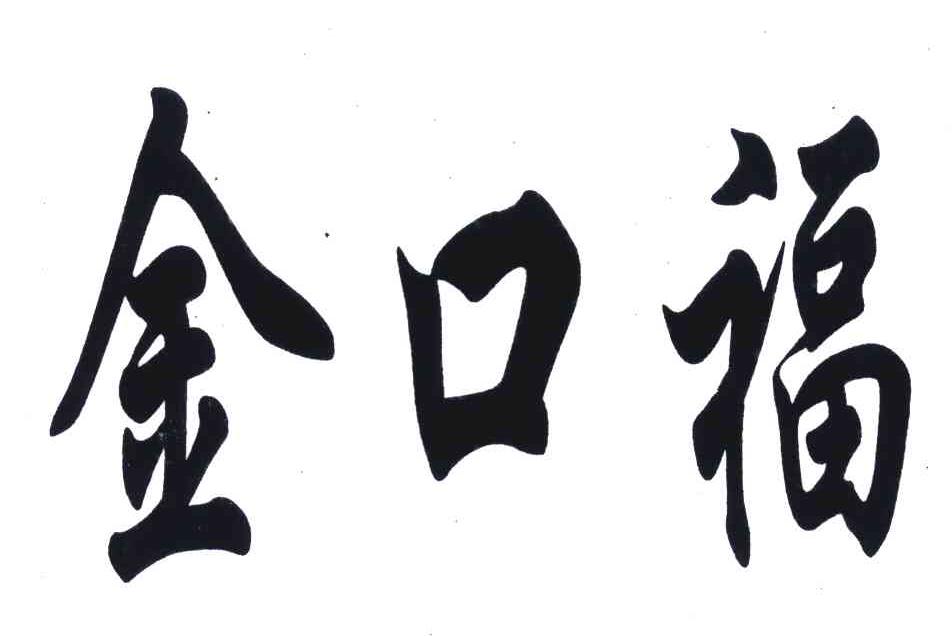 金口福